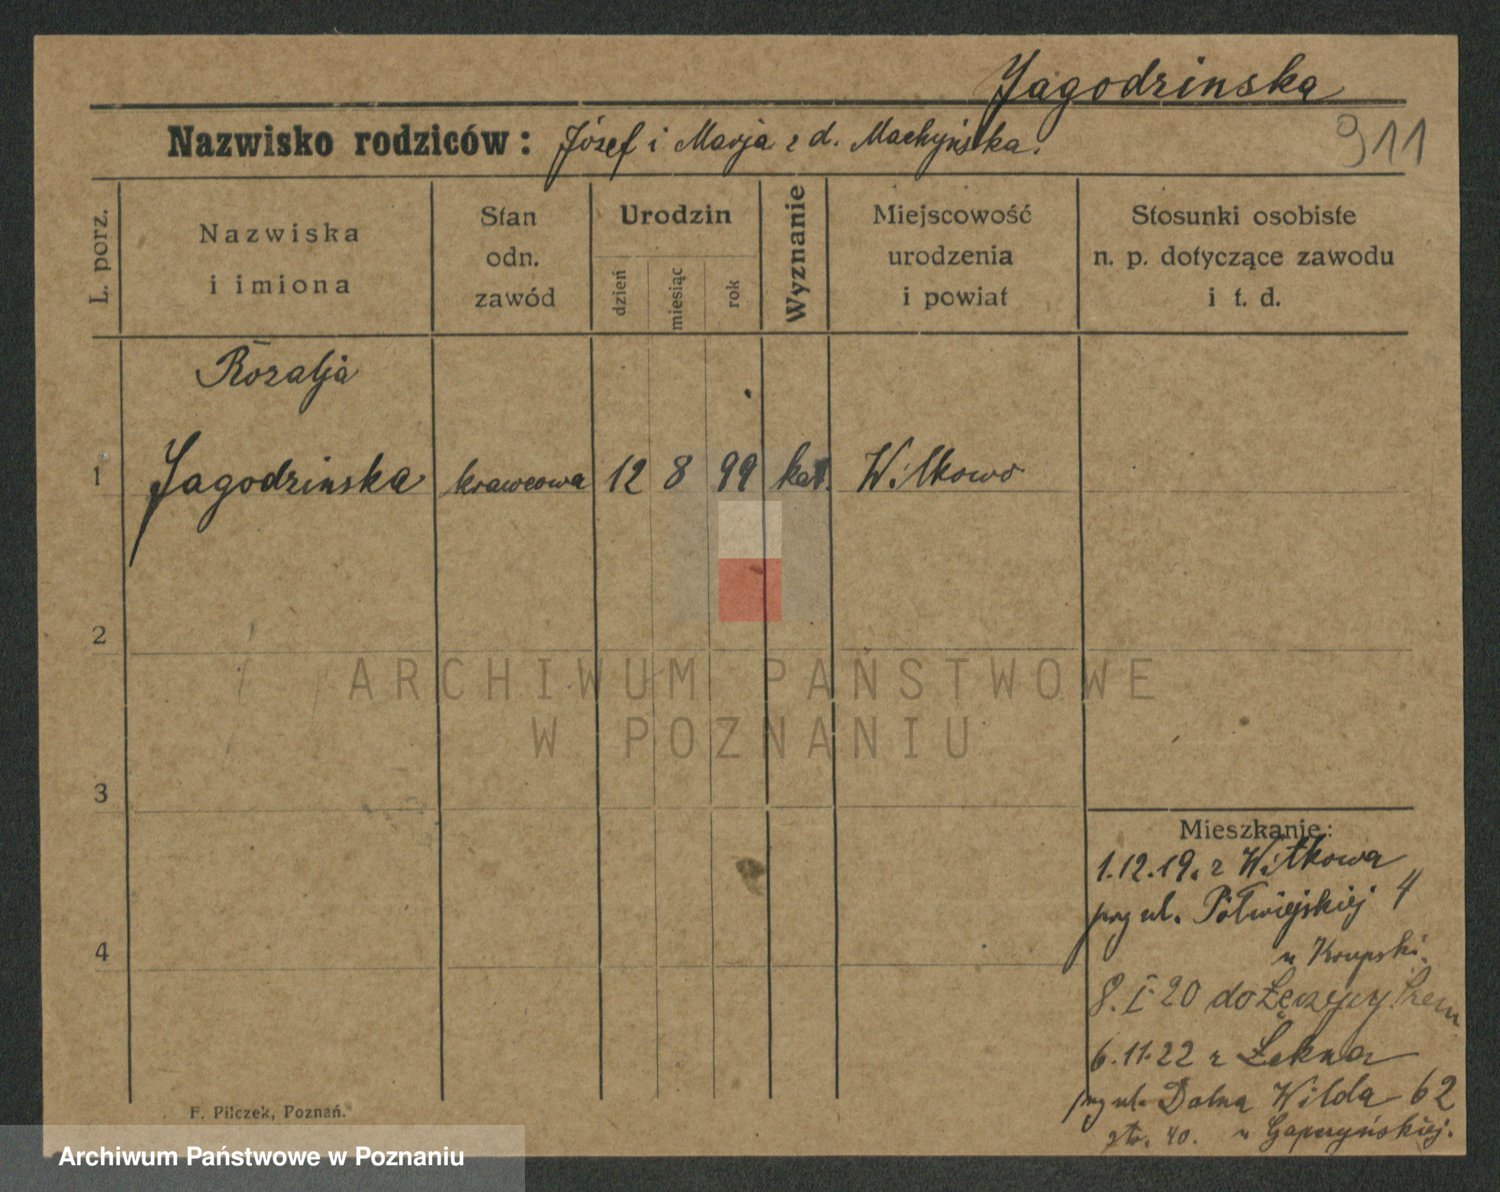 Jagodzinska
Nazwisko rodziców: Józef i Marja z d. Machyńska.
911
L. porz.
Nazwiska
i imiona
Stan
odn.
zawód
Urodzin
dzień
miesiąc
rok
Wyznanie
Miejscowość
urodzenia
i powiat
Stosunki osobiste
n. p. dotyczące zawodu
i t. d.
Rozalja
1 Jagodzinska krawcowa 12 8 99 kat. Witkowo
2
3
4
Mieszkanie:
1.12.19. z Witkowa
przy ul. Półwiejskiej 4
u Krupski.
8. I 20 do
6.11.22 z Łekna
przy ul. Dolna Wilda 62
F. Pilczek, Poznań.
ARCHIWUM PAŃSTWOWE
W POZNANIU
Archiwum Państwowe w Poznaniu